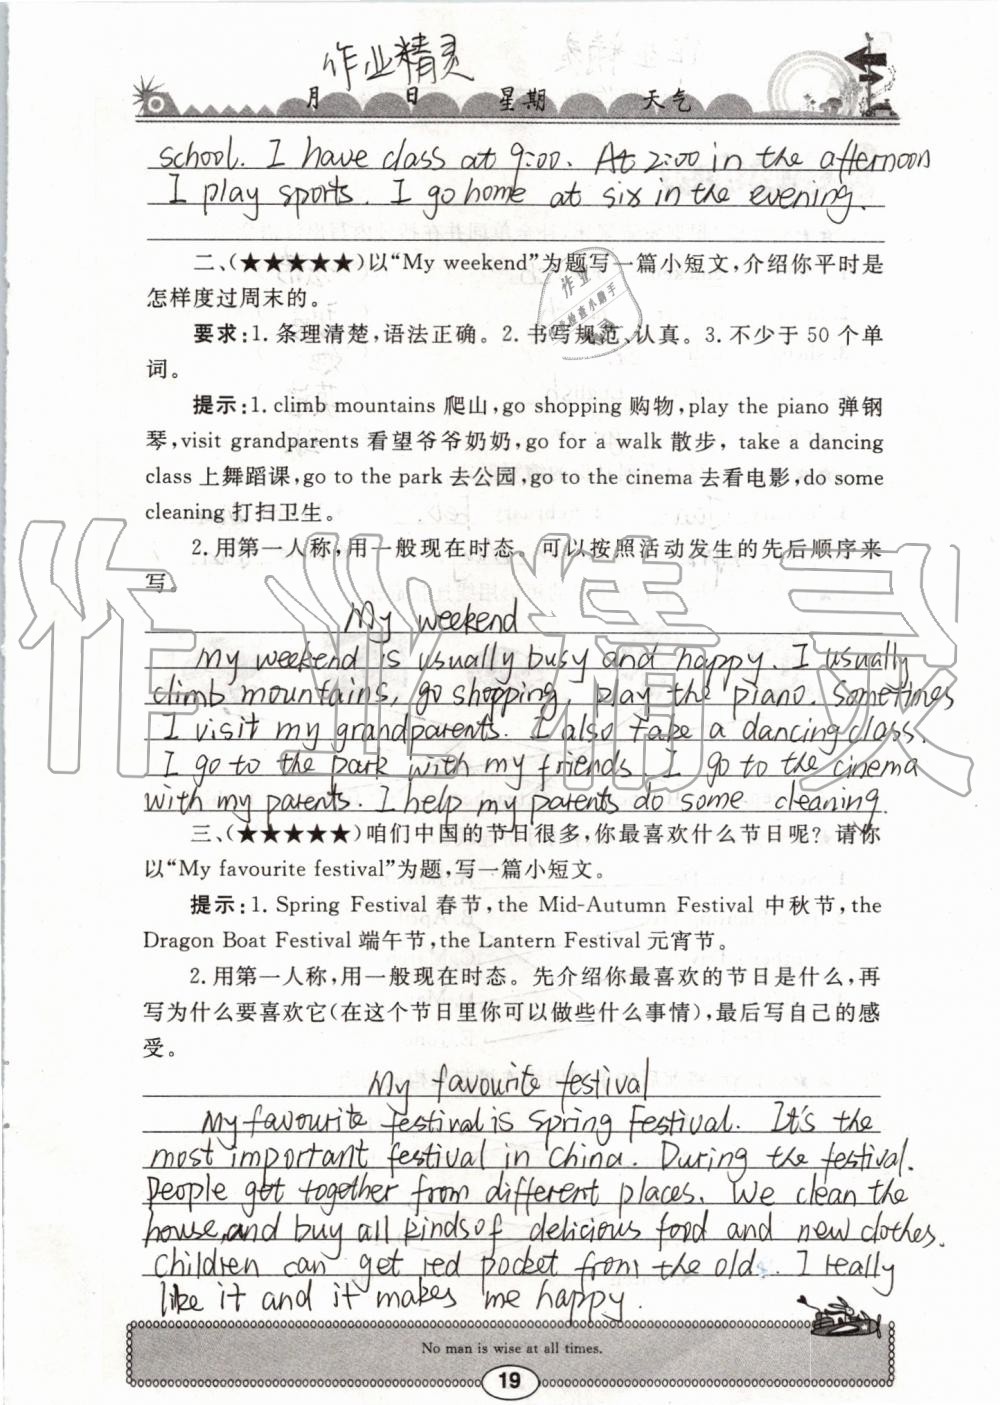 作业精灵
月 日 星期 天气
school. I have class at 9:00. At 2:00 in the afternoon
I play sports. I go home at six in the evening.
二、(★★★★★)以“My weekend”为题写一篇小短文,介绍你平时是
怎样度过周末的。
要求:1.条理清楚,语法正确。2.书写规范、认真。3.不少于50个单
词。
提示:1.climb mountains 爬山,go shopping 购物,play the piano 弹钢
琴,visit grandparents 看望爷爷奶奶,go for a walk 散步, take a dancing
class 上舞蹈课,go to the park 去公园,go to the cinema 去看电影,do some
cleaning 打扫卫生。
2.用第一人称,用一般现在时态。可以按照活动发生的先后顺序来
写。
My weekend
My weekend is usually busy and happy. I usually
climb mountains, go shopping, play the piano. Sometimes
I visit my grandparents. I also take a dancing class.
I go to the park with my friends. I go to the cinema
with my parents. I help my parents do some cleaning.
三、(★★★★★)咱们中国的节日很多,你最喜欢什么节日呢? 请你
以“My favourite festival”为题,写一篇小短文。
提示:1. Spring Festival 春节,the Mid-Autumn Festival 中秋节,the
Dragon Boat Festival 端午节,the Lantern Festival 元宵节。
2.用第一人称,用一般现在时态。先介绍你最喜欢的节日是什么,再
写为什么要喜欢它(在这个节日里你可以做些什么事情),最后写自己的感
受。
My favourite festival
My favourite festival is Spring Festival. It's the
most important festival in China. During the festival.
People get together from different places. We clean the
house, and buy all kinds of delicious food and new clothes.
Children can get red pocket from the old. I really
like it and it makes me happy.
No man is wise at all times.
19
作业精灵